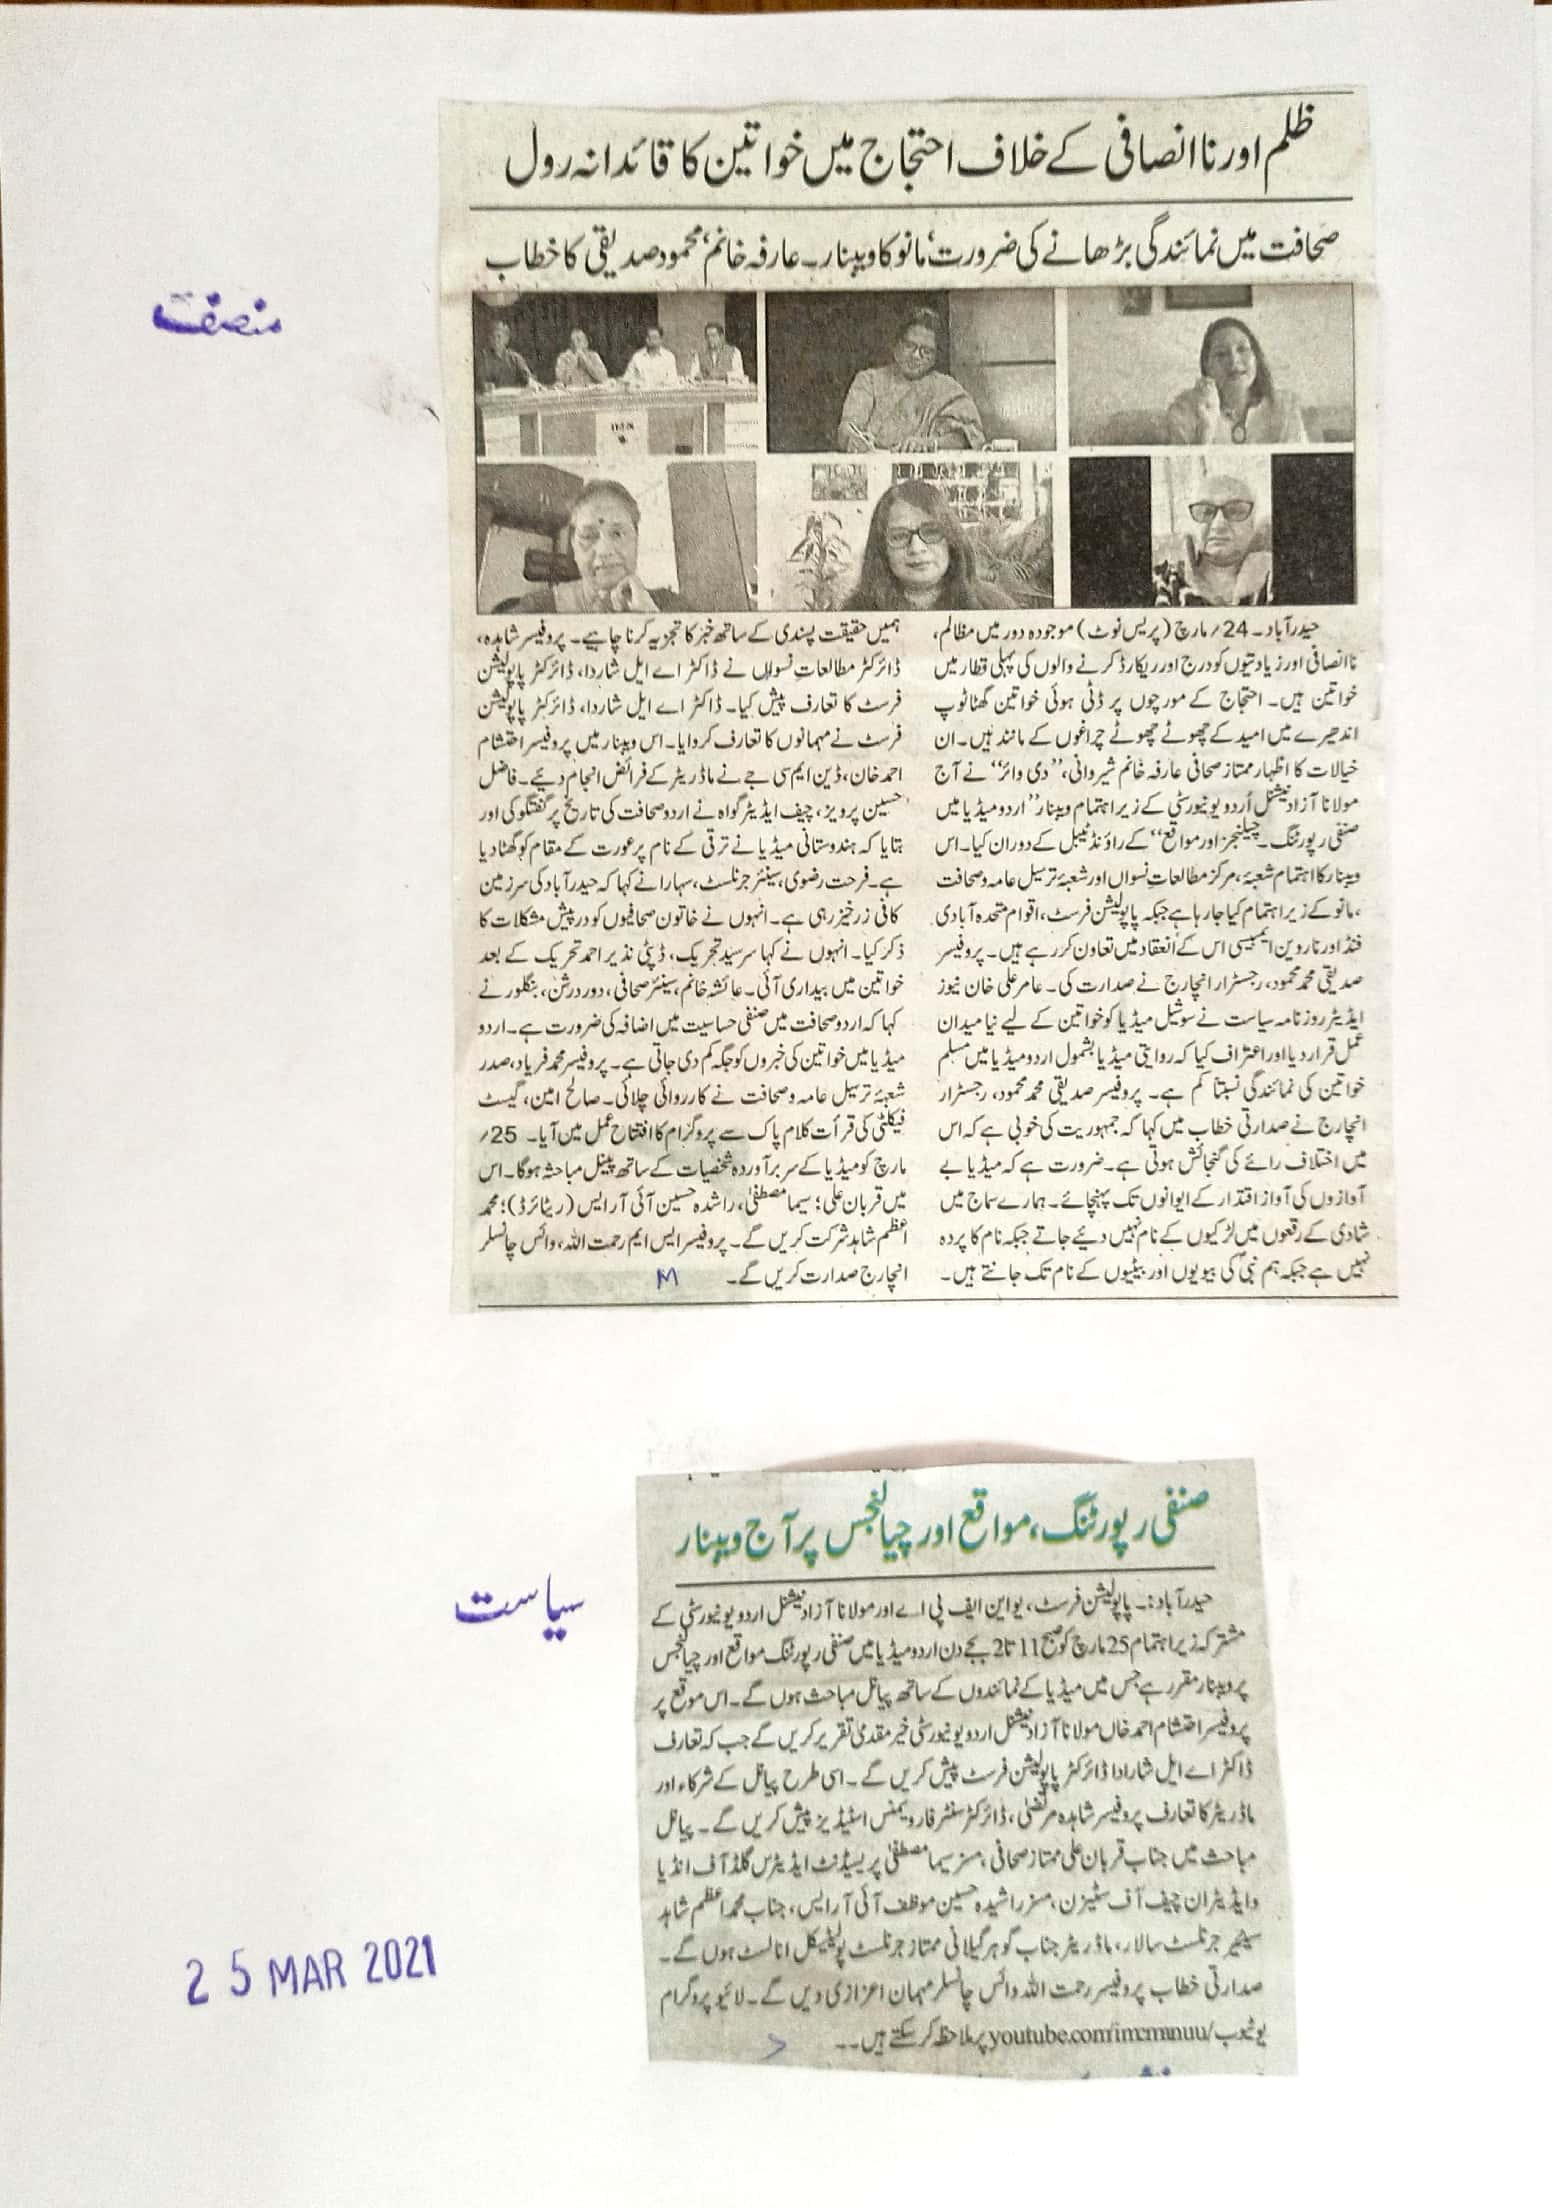 ظلم اور ناانصافی کے خلاف احتجاج میں خواتین کا قائدانہ رول
صحافت میں نمائندگی بڑھانے کی ضرورت‘ مانو کا ویبنار۔ عارفہ خانم‘ محمود صدیقی کا خطاب
منصف
حیدرآباد۔ 24/ مارچ (پریس نوٹ) موجودہ دور میں مظالم،
ناانصافی اور زیادتیوں کو درج اور ریکارڈ کرنے والوں کی پہلی قطار میں
خواتین ہیں۔ احتجاج کے مورچوں پر ڈٹی ہوئی خواتین گھٹاٹوپ
اندھیرے میں امید کے چھوٹے چھوٹے چراغوں کے مانند ہیں۔ ان
خیالات کا اظہار ممتاز صحافی عارفہ خانم شیروانی، ”دی وائر“ نے آج
مولانا آزاد نیشنل اُردو یونیورسٹی کے زیر اہتمام ویبنار ”اردو میڈیا میں
صنفی رپورٹنگ۔ چیلنجز اور مواقع“ کے راؤنڈ ٹیبل کے دوران کیا۔ اس
ویبنار کا اہتمام شعبۂ، مرکز مطالعات نسواں اور شعبۂ ترسیل عامہ و صحافت
،مانو کے زیر اہتمام کیا جا رہا ہے جبکہ پاپولیشن فرسٹ، اقوام متحدہ آبادی
فنڈ اور ناروین ایمبیسی اس کے انعقاد میں تعاون کر رہے ہیں۔ پروفیسر
صدیقی محمد محمود، رجسٹرار انچارج نے صدارت کی۔ عامر علی خان نیوز
ایڈیٹر روزنامہ سیاست نے سوشیل میڈیا کو خواتین کے لیے نیا میدان
عمل قرار دیا اور اعتراف کیا کہ روایتی میڈیا بشمول اردو میڈیا میں مسلم
خواتین کی نمائندگی نسبتاً کم ہے۔ پروفیسر صدیقی محمد محمود، رجسٹرار
انچارج نے صدارتی خطاب میں کہا کہ جمہوریت کی خوبی ہے کہ اس
میں اختلاف رائے کی گنجائش ہوتی ہے۔ ضرورت ہے کہ میڈیا بے
آوازوں کی آواز اقتدار کے ایوانوں تک پہنچائے۔ ہمارے سماج میں
شادی کے رقعوں میں لڑکیوں کے نام نہیں دیئے جاتے جبکہ نام کا پردہ
نہیں ہے جبکہ ہم نبیؐ کی بیویوں اور بیٹیوں کے نام تک جانتے ہیں۔
ہمیں حقیقت پسندی کے ساتھ خبر کا تجزیہ کرنا چاہیے۔ پروفیسر شاہدہ،
ڈائرکٹر مطالعات نسواں نے ڈاکٹر اے ایل شاردا، ڈائرکٹر پاپولیشن
فرسٹ کا تعارف پیش کیا۔ ڈاکٹر اے ایل شاردا، ڈائرکٹر پاپولیشن
فرسٹ نے مہمانوں کا تعارف کروایا۔ اس ویبنار میں پروفیسر احتشام
احمد خان، ڈین ایم سی جے نے ماڈریٹر کے فرائض انجام دیئے۔ فاضل
حسین پرویز، چیف ایڈیٹر گواہ نے اردو صحافت کی تاریخ پر گفتگو کی اور
بتایا کہ ہندوستانی میڈیا نے ترقی کے نام پر عورت کے مقام کو گھٹا دیا
ہے۔ فرحت رضوی، سینئر جرنلسٹ، سہارا نے کہا کہ حیدرآباد کی سرزمین
کافی زرخیز رہی ہے۔ انہوں نے خاتون صحافیوں کو درپیش مشکلات کا
ذکر کیا۔ انہوں نے کہا سرسید تحریک، ڈپٹی نذیر احمد تحریک کے بعد
خواتین میں بیداری آئی۔ عائشہ خانم، سینئر صحافی، دوردرشن، بنگلور نے
کہا کہ اردو صحافت میں صنفی حساسیت میں اضافہ کی ضرورت ہے۔ اردو
میڈیا میں خواتین کی خبروں کو جگہ کم دی جاتی ہے۔ پروفیسر محمد فریاد، صدر
شعبۂ ترسیل عامہ و صحافت نے کارروائی چلائی۔ صالح امین، گیسٹ
فیکلٹی کی قرأت کلام پاک سے پروگرام کا افتتاح عمل میں آیا۔ 25/
مارچ کو میڈیا کے سربرآوردہ شخصیات کے ساتھ پینل مباحثہ ہوگا۔ اس
میں قربان علی؛ سیما مصطفیٰ، راشدہ حسین آئی آر ایس (ریٹائرڈ)؛ محمد
اعظم شاہد شرکت کریں گے۔ پروفیسر ایس ایم رحمت اللہ، وائس چانسلر
انچارج صدارت کریں گے۔ M
صنفی رپورٹنگ، مواقع اور چیالنجس پر آج ویبنار
سیاست
حیدرآباد:۔ پاپولیشن فرسٹ، یو این ایف پی اے اور مولانا آزاد نیشنل اردو یونیورسٹی کے
مشترکہ زیر اہتمام 25 مارچ کو صبح 11 تا 2 بجے دن اردو میڈیا میں صنفی رپورٹنگ مواقع اور چیالنجس
پر ویبنار مقرر ہے جس میں میڈیا کے نمائندوں کے ساتھ پیانل مباحث ہوں گے۔ اس موقع پر
پروفیسر احتشام احمد خاں مولانا آزاد نیشنل اردو یونیورسٹی خیرمقدمی تقریر کریں گے جب کہ تعارف
ڈاکٹر اے ایل شارادا ڈائرکٹر پاپولیشن فرسٹ پیش کریں گے۔ اسی طرح پیانل کے شرکاء اور
ماڈریٹر کا تعارف پروفیسر شاہدہ مرتضیٰ، ڈائرکٹر سنٹر فار ویمنس اسٹیڈیز پیش کریں گے۔ پیانل
مباحث میں جناب قربان علی ممتاز صحافی، مسز سیما مصطفیٰ پریسیڈنٹ ایڈیٹرس گلڈ آف انڈیا
و ایڈیٹر ان چیف آف سٹیزن، مسز راشیدہ حسین موظف آئی آر ایس، جناب محمد اعظم شاہد
سینئیر جرنلسٹ سالار، ماڈریٹر جناب گوہر گیلانی ممتاز جرنلسٹ پولیٹیکل انالسٹ ہوں گے۔
صدارتی خطاب پروفیسر رحمت اللہ وائس چانسلر مہمان اعزازی دیں گے۔ لائیو پروگرام
یوٹیوب/youtube.com/imcmnuu پر ملاحظہ کر سکتے ہیں۔۔
25 MAR 2021